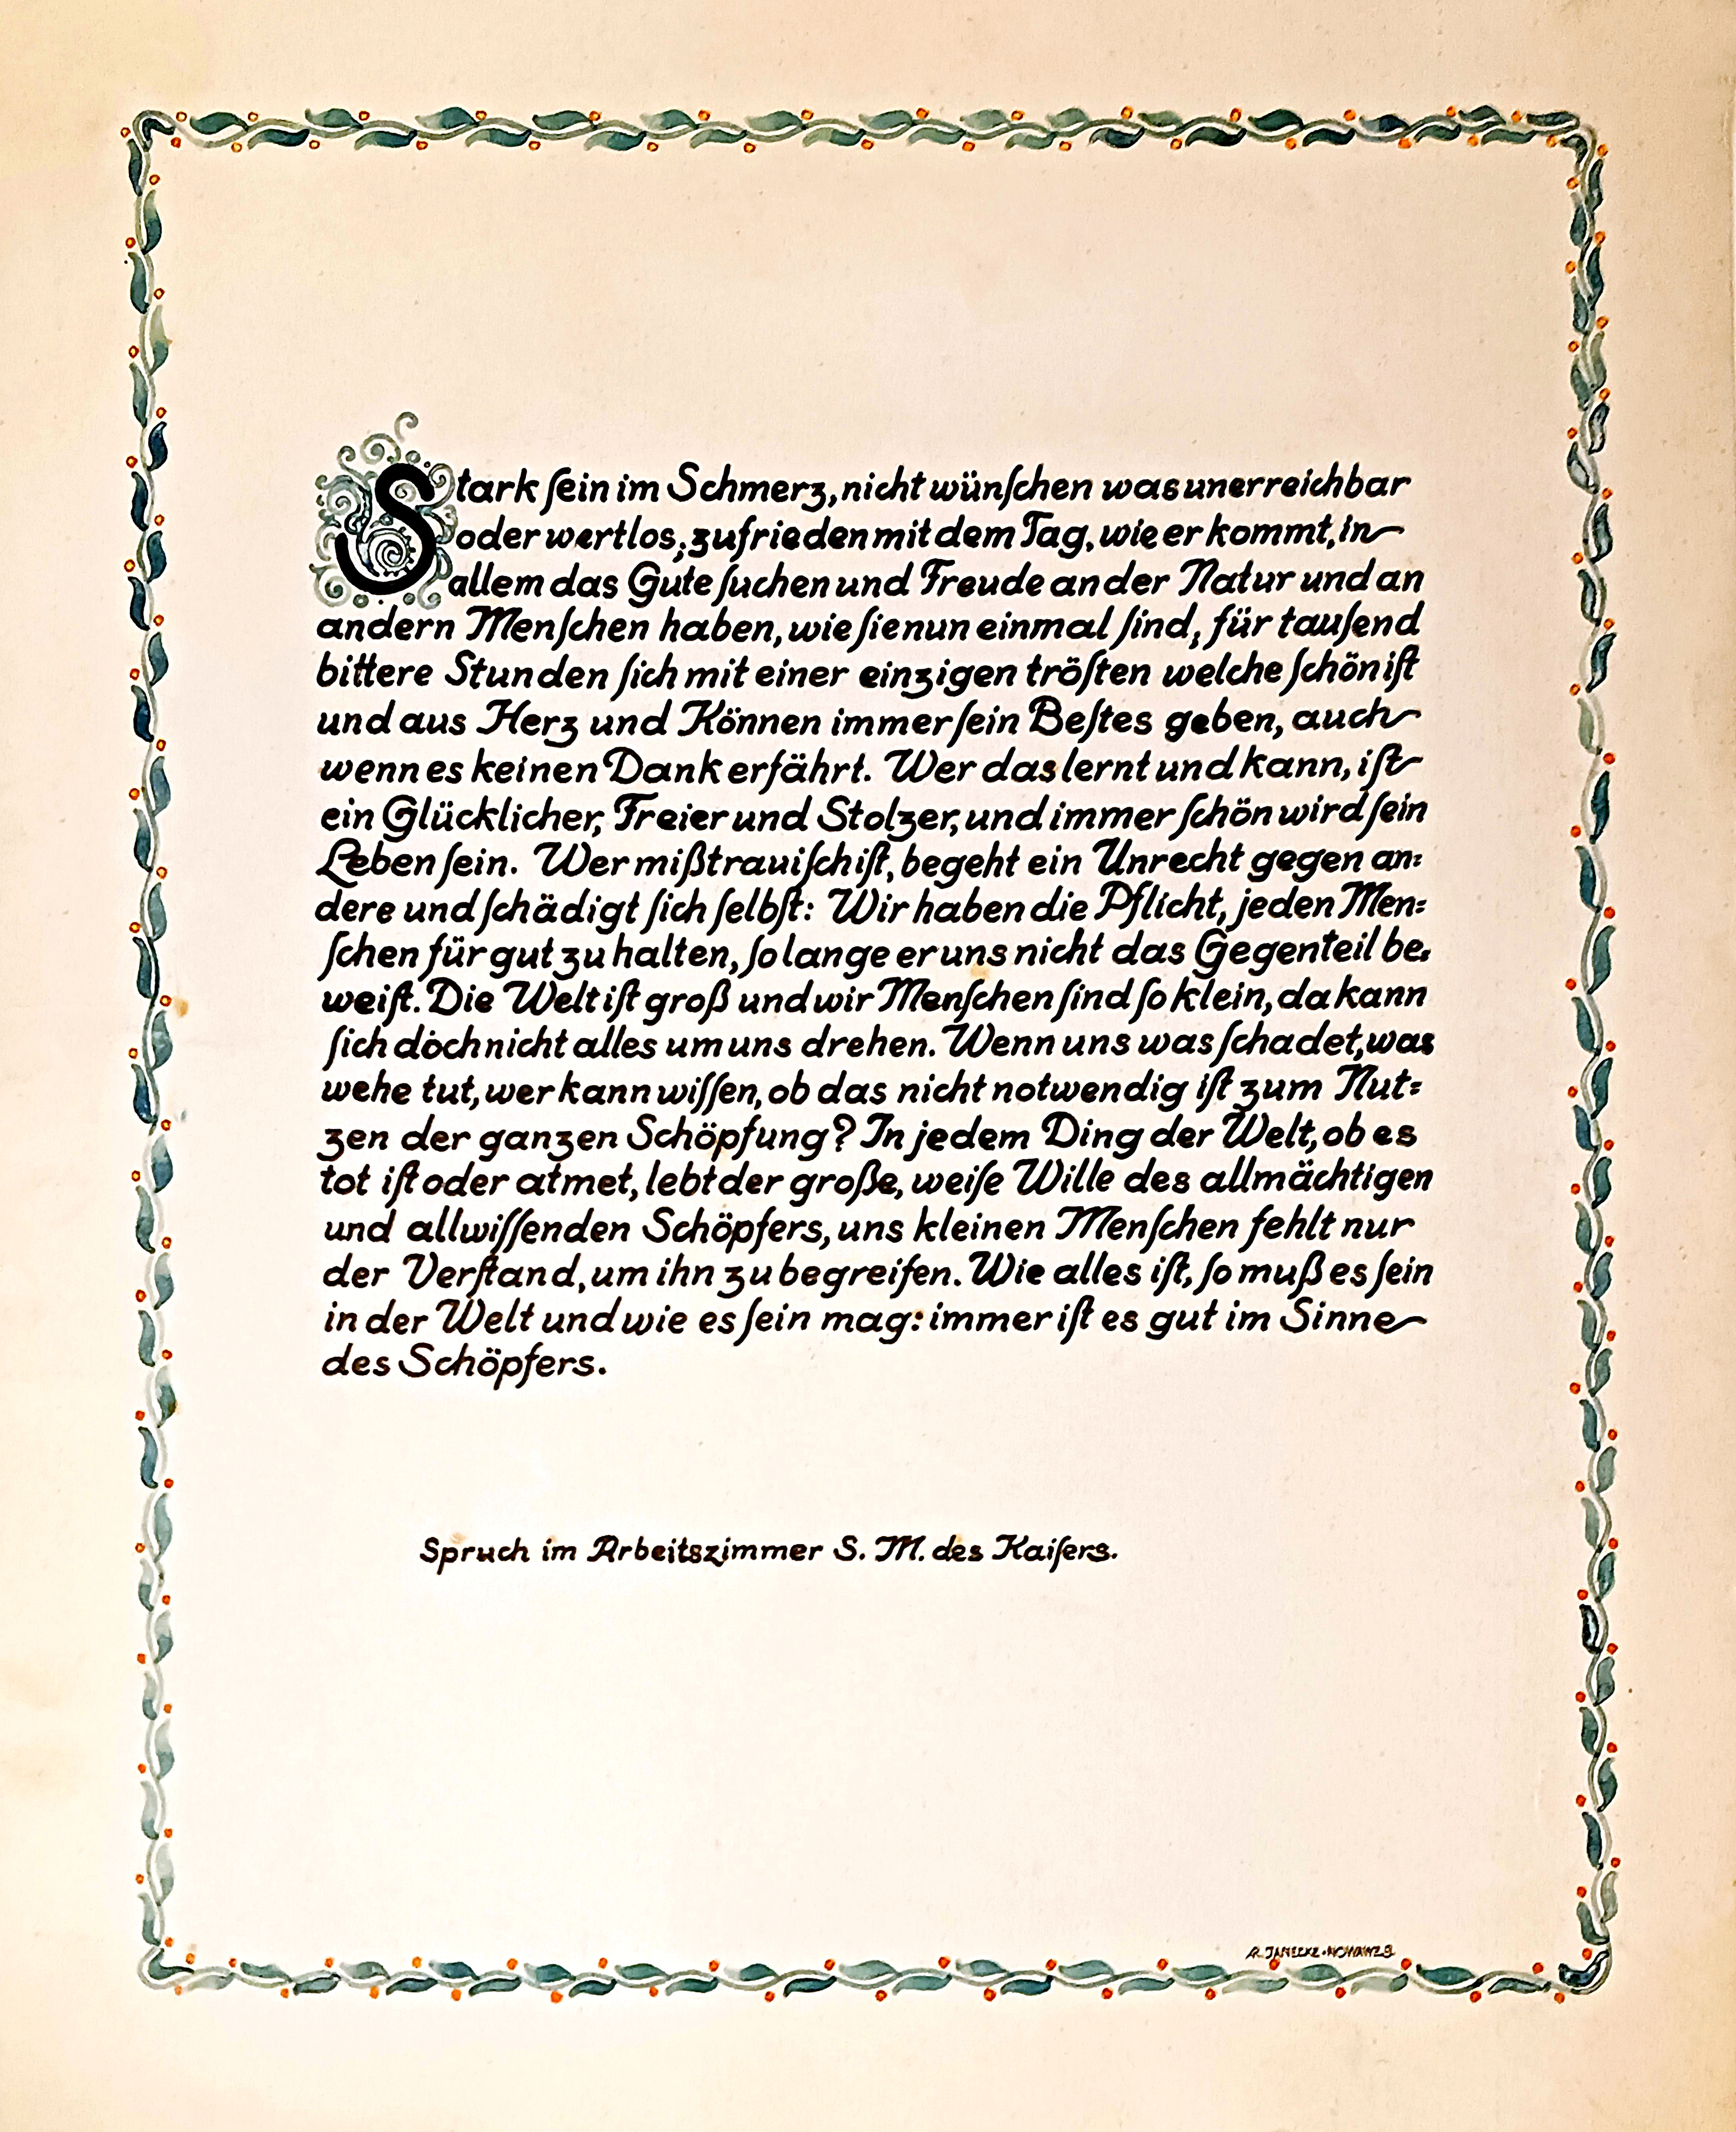 Stark ſein im Schmerz, nicht wünſchen was unerreichbar
oder wertlos; zufrieden mit dem Tag, wie er kommt, in
allem das Gute ſuchen und Freude an der Natur und an
andern Menſchen haben, wie ſie nun einmal ſind; für tauſend
bittere Stunden ſich mit einer einzigen tröſten welche ſchön iſt
und aus Herz und Können immer ſein Beſtes geben, auch
wenn es keinen Dank erfährt. Wer das lernt und kann, iſt
ein Glücklicher, Freier und Stolzer, und immer ſchön wird ſein
Leben ſein. Wer mißtrauiſch iſt, begeht ein Unrecht gegen an=
dere und ſchädigt ſich ſelbſt: Wir haben die Pflicht, jeden Men=
ſchen für gut zu halten, ſo lange er uns nicht das Gegenteil be=
weiſt. Die Welt iſt groß und wir Menſchen ſind ſo klein, da kann
ſich doch nicht alles um uns drehen. Wenn uns was ſchadet, was
wehe tut, wer kann wiſſen, ob das nicht notwendig iſt zum Nut=
zen der ganzen Schöpfung? In jedem Ding der Welt, ob es
tot iſt oder atmet, lebt der große, weiſe Wille des allmächtigen
und allwiſſenden Schöpfers, uns kleinen Menſchen fehlt nur
der Verſtand, um ihn zu begreifen. Wie alles iſt, ſo muß es ſein
in der Welt und wie es ſein mag: immer iſt es gut im Sinne
des Schöpfers.
Spruch im Arbeitszimmer S. M. des Kaiſers.
R. JANECKE·NOWAWES